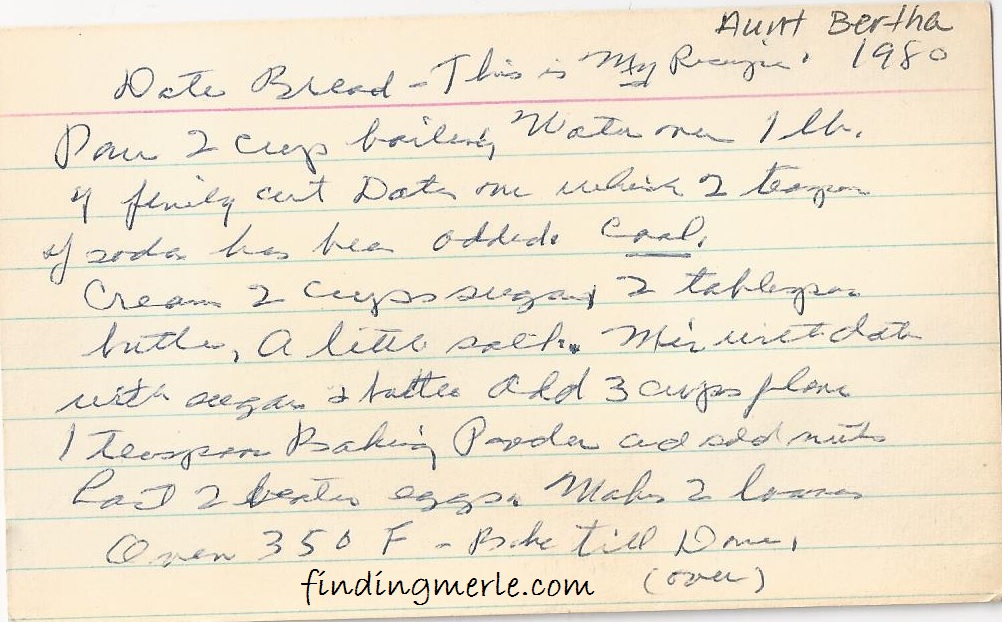 Aunt Bertha
Date Bread - This is My Recipie. 1980
Pour 2 cups boiling Water over 1 lb.
of finely cut Dates on which 2 teaspoon
of soda has been added. Cool.
Cream 2 cups sugar, 2 tablespoon
butter, A little salt. Mix with date
with sugar & butter add 3 cups flour
1 teaspoon Baking Powder and add nuts
Last 2 beaten eggs. Makes 2 loaves
Oven 350 F - Bake till Done.
(over)
findingmerle.com